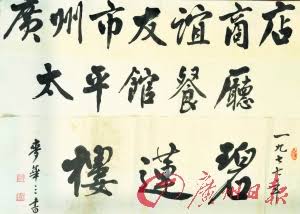 廣州市友誼商店
太平館餐廳
一九七七
碧蓮樓
麥華三書
廣州日报